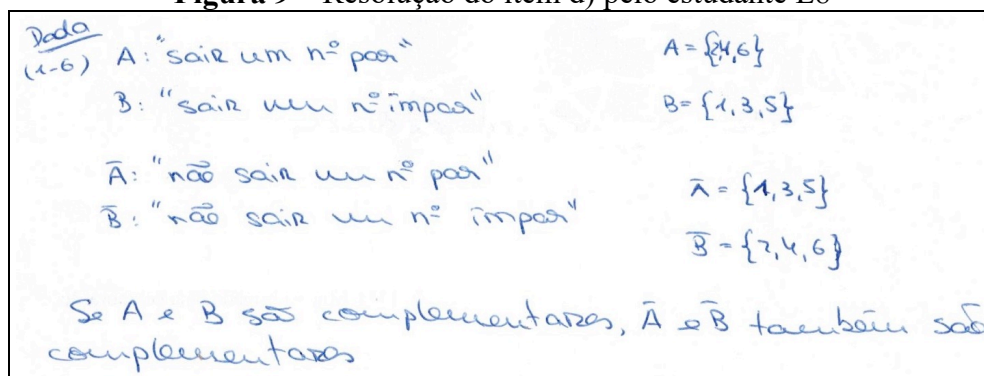 Figura 9 – Resolução do item d) pelo estudante E8
Dado
(1-6) A: "sair um nº par" A = {2,4,6}
B: "sair um nº ímpar" B = {1,3,5}
Ā: "não sair um nº par" Ā = {1,3,5}
B̄: "não sair um nº ímpar" B̄ = {2,4,6}
Se A e B são complementares, Ā e B̄ também são
complementares